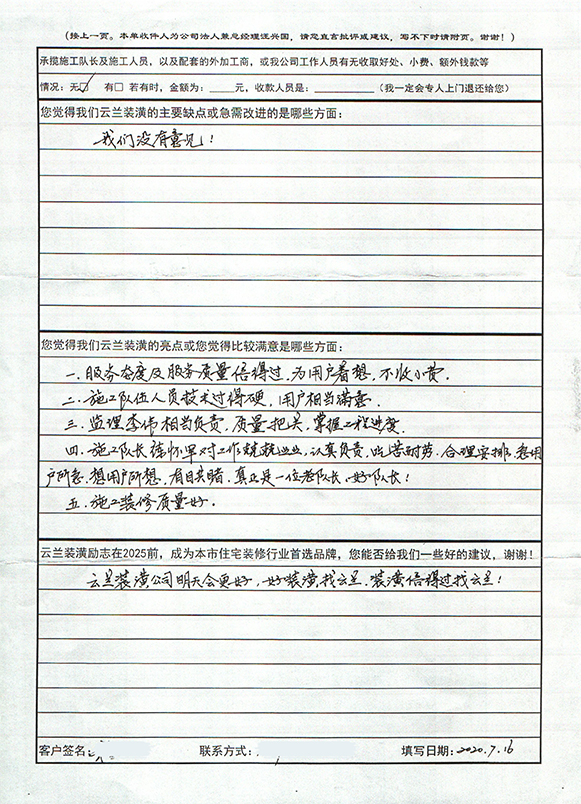 (接上一页。本单收件人为公司法人兼总经理汪兴国，请您直言批评或建议，写不下时请附页。谢谢！)
承揽施工队长及施工人员，以及配套的外加工商，或我公司工作人员有无收取好处、小费、额外钱款等
情况：无☑ 有□ 若有时，金额为： 元，收款人员是： (我一定会专人上门退还给您)
您觉得我们云兰装潢的主要缺点或急需改进的是哪些方面：
我们没有意见！
您觉得我们云兰装潢的亮点或您觉得比较满意是哪些方面：
一.服务态度及服务质量信得过.为用户着想，不收小费.
二.施工队伍人员技术过得硬，用户相当满意.
三.监理李伟相当负责，质量把关，掌握工程进度.
四.施工队长 怀早对工作兢兢业业，认真负责，吃苦耐劳.合理安排.急用
户所急.想用户所想，有目共睹.真正是一位老队长、好队长！
五.施工装修质量好.
云兰装潢励志在2025前，成为本市住宅装修行业首选品牌，您能否给我们一些好的建议，谢谢！
云兰装潢公司明天会更好，好装潢找云兰.装潢信得过找云兰！
客户签名： 联系方式： 填写日期：2020.7.16